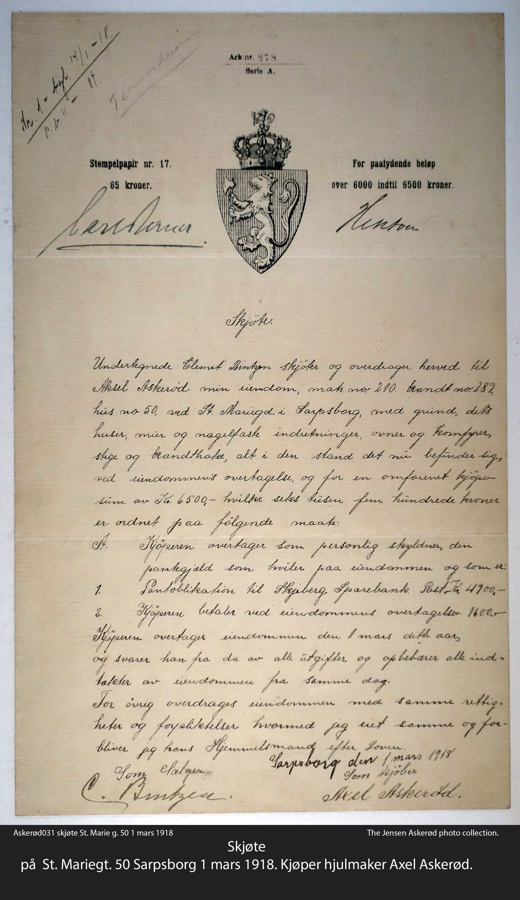 Ark nr. 878
Serie A.
No. 1 - 14/1 - 18
Stempelpapir nr. 17.
65 kroner.
For paalydende beløp
over 6000 indtil 6500 kroner.
Skjöte.
Undertegnede Clemet Bentzen skjöter og overdrager herved til
Aksel Askeröd min eiendom, matr. no: 210. brandt no: 282,
hus no 50, ved St. Mariegd. i Sarpsborg, med grund, dets
huser, mur og nagelfaste indretninger, ovner og komfyrer,
stige og brandthake, alt i den stand det nu befinder seg,
ved eiendommens overtagelse, og for en omforenet kjöpe-
sum av Kr. 6500,- hvilke seks tusen fem hundrede kroner
er ordnet paa fölgende maate:
A. Kjöperen overtager som personlig skyldner, den
pantgjeld som hviler paa eiendommen og som er:
1. Pantobligation til Skjeberg Sparebank. Rest Kr 4900,-
2. Kjöperen betaler ved eiendommens overtagelse 1600,-
Kjöperen overtager eiendommen den 1 mars dette aar,
og svarer han fra da av alle utgifter og oppebærer alle ind-
tækter av eiendommen fra samme dag.
For övrig overdrages eiendommen med samme rettig-
heter og forpliktelser hvormed jeg eiet samme og for-
bliver jeg hans Hjemmelsmand efter Loven.
Sarpsborg den 1 mars 1918
Som Sælger
Som kjöber
C. Bentzen.
Axel Askeröd.
Askerød031 skjøte St. Marie g. 50 1 mars 1918
The Jensen Askerød photo collection.
Skjøte
på St. Mariegt. 50 Sarpsborg 1 mars 1918. Kjøper hjulmaker Axel Askerød.